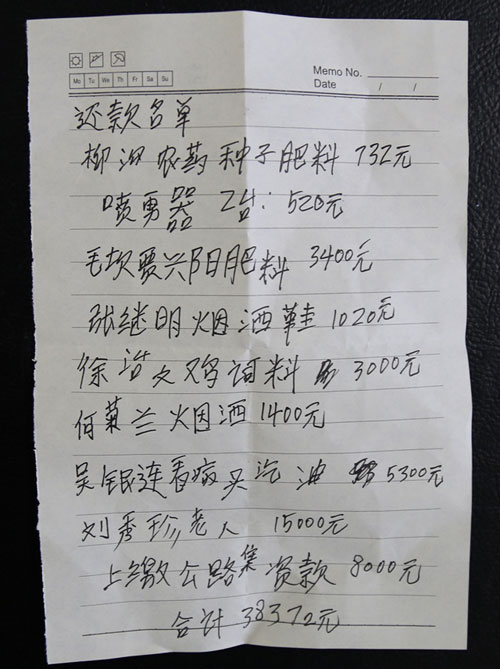 Mo Tu We Th Fr Sa Su
Memo No.
Date / /
还款名单
柳河农药种子肥料 732元
喷勇器 2台: 520元
毛坝贾兴阳肥料 3400元
张继明烟酒鞋 1020元
徐浩文鸡饲料 3000元
何菊兰烟酒 1400元
吴银连看病买汽油 5300元
刘秀珍老人 15000元
上缴公路集资款 8000元
合计 38372元